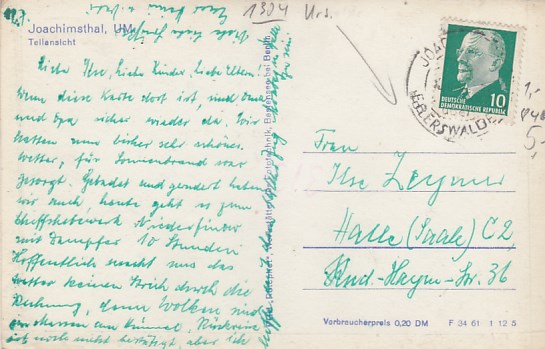 Joachimsthal, UM
Teilansicht
1304 Urs.
Liebe Ilse, Liebe Kinder, Liebe Eltern!
Wenn diese Karte dort ist, sind
und Opa sicher wieder da. Wir
hatten nun bisher sehr schönes
Wetter, für Sonnenbrand war
gesorgt. Gebadet und gerudert haben
wir auch, heute geht es zum
Schiffshebewerk Niederfinow
mit Dampfer 10 Stunden
Hoffentlich macht uns das
Wetter keinen Strich durch die
Rechnung, denn Wolken sind
am Himmel, Rückreise
ist noch nicht bestätigt, aber ich
JOACH
EBERSWALDE
10
DEUTSCHE
DEMOKRATISCHE REPUBLIK
1,-
5,-
Frau
Ilse Zeymer
Halle (Saale) C2
Rud.-Haym-Str. 36
Verbraucherpreis 0,20 DM F 34 61 1 12 5